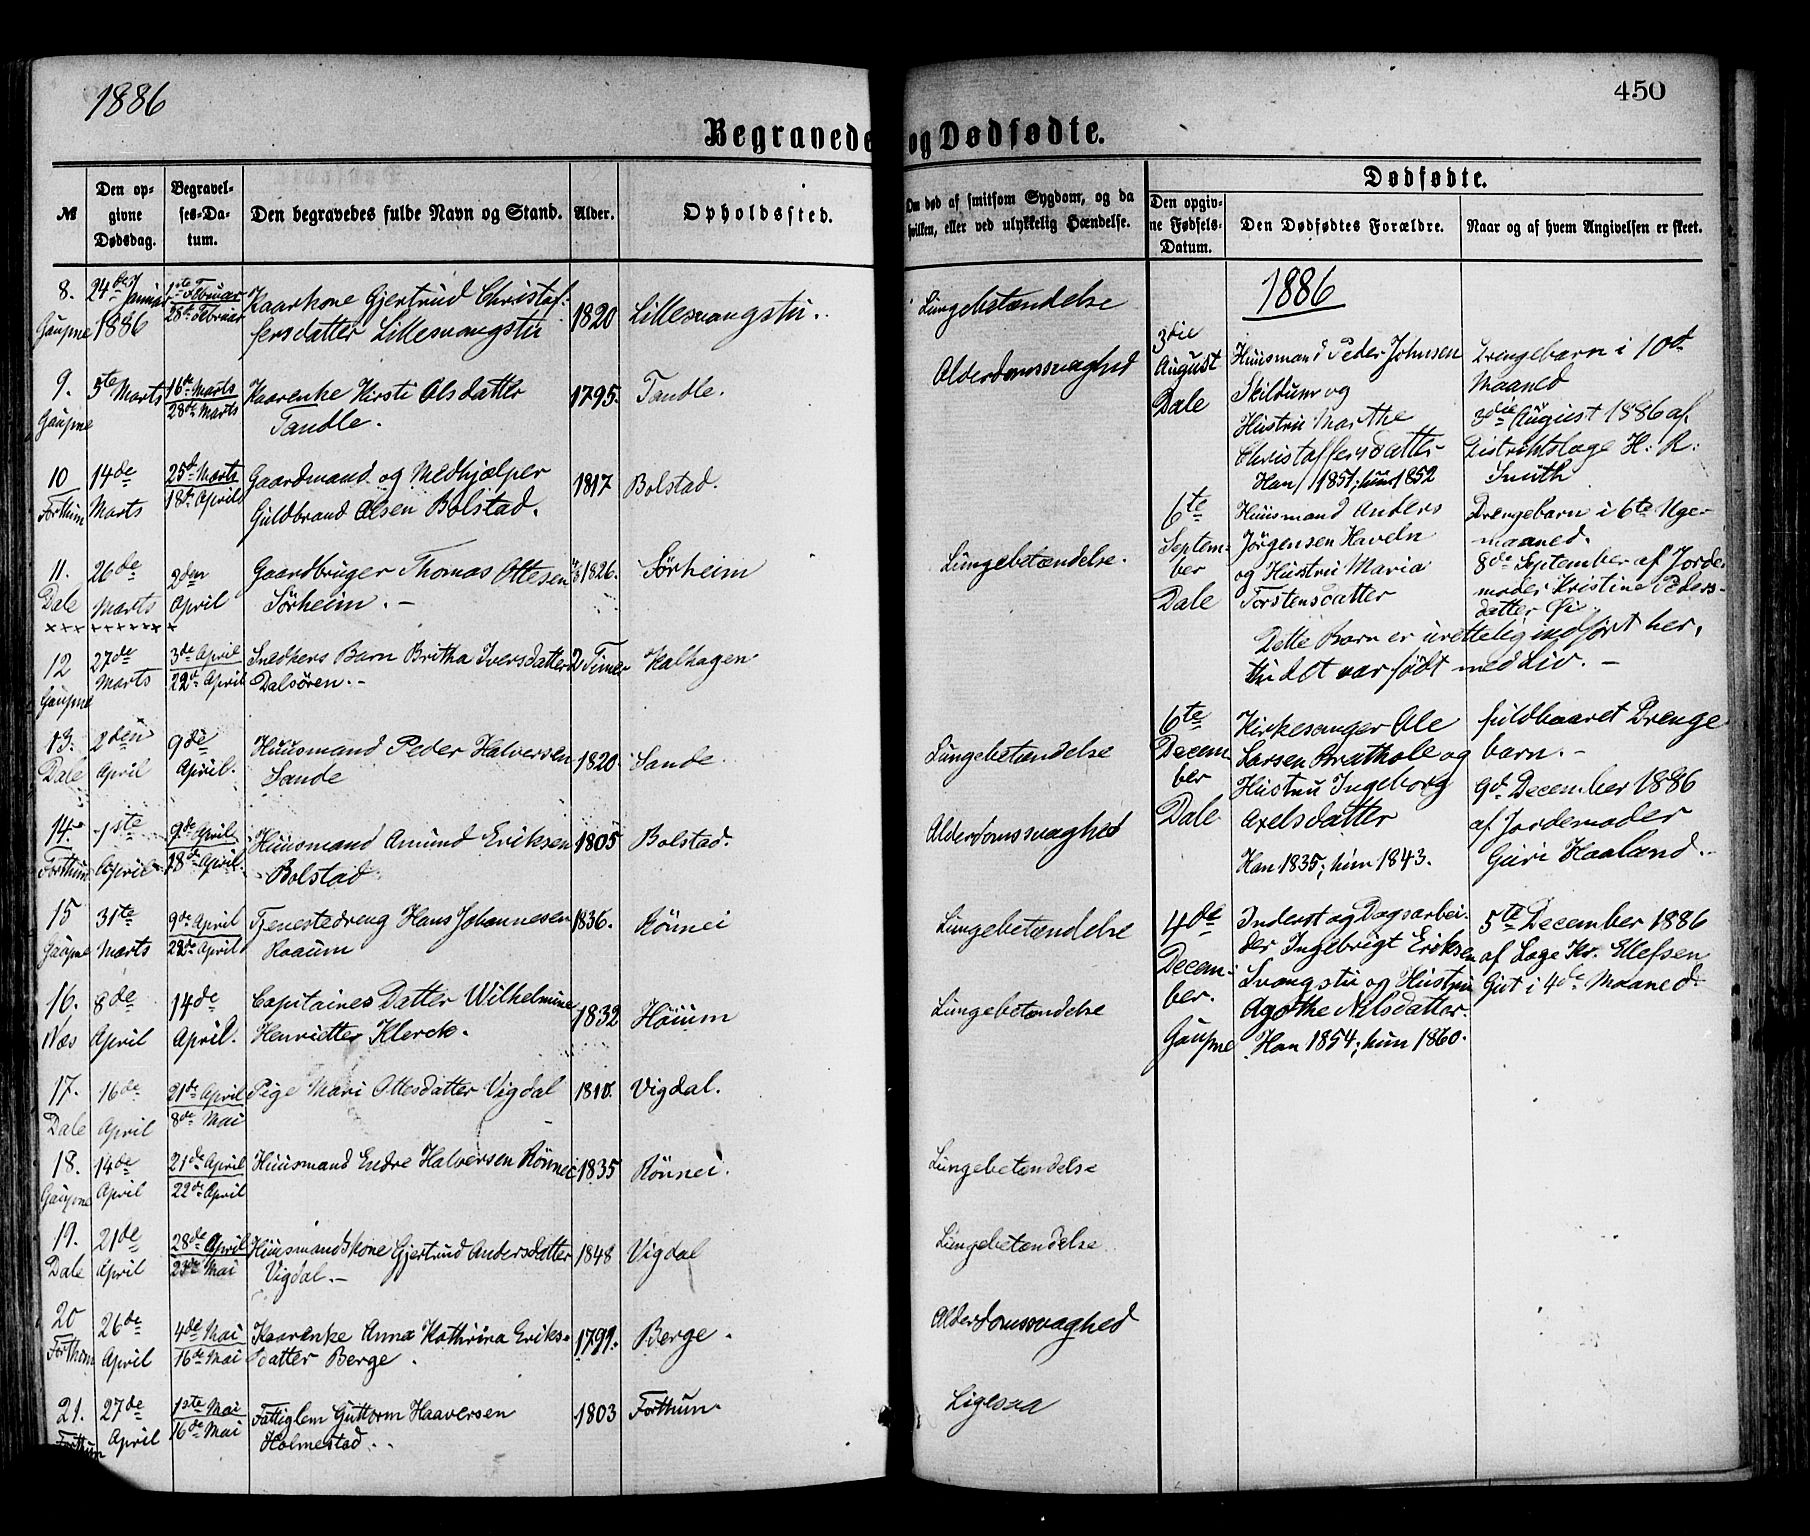 1886
450
Begravede og Dødfødte.
№
Den op-
givne
Dødsdag.
Begravel-
ses-Da-
tum.
Den begravedes fulde Navn og Stand.
Alder.
Opholdssted.
Om død af smitsom Sygdom, og da
hvilken, eller ved ulykkelig Hændelse.
Dødfødte.
Den opgiv-
ne Fødsels-
Datum.
Den Dødfødtes Forældre.
Naar og af hvem Angivelsen er skeet.
8. 24de Januar 1ste Februar Kaarkone Gjertrud Christof-
Gaupne 1886 28de Februar fersdatter Lillesvangstu 1820 Lillesvangstu.
Lungebetændelse
9. 5te Marts 16de Marts Kaarenke Kirsti Olsdatter 1795. Tandle.
Gaupne 28de Marts Tandle.
Alderdomssvaghed
10 14de 25de Marts Gaardmand og Medhjælper 1817 Bolstad.
Forthun Marts 18de April Guldbrand Olsen Bolstad.
11. 26de 2den Gaardbruger Thomas Ottesen 1826. Sørheim
Dale Marts April Sørheim. -
Lungebetændelse.
12 27de 3de April Snedkers Barn Britha Iversdatter 2 Timer Kalhagen
Gaupne Marts 22de April Dalsøren. -
13. 2den 9de Huusmand Peder Halversen 1820. Sande.
Dale April April. Sande
Lungebetændelse
14. 1ste 9de April Huusmand Amund Eriksen 1805 Bolstad.
Forthun April 18de April. Bolstad
Alderdomssvaghed
15 31te 9de April Tjenestedreng Hans Johannesen 1836. Rönnei
Gaupne Marts 22de April Roaum
Lungebetændelse
16. 8de 14de Capitaines Datter Wilhelmine 1832 Höium
Næs April April. Henriette Klerck.
Lungebetændelse
17. 16de 21de April Pige Mari Ottesdatter Vigdal 1810. Vigdal.
Dale April 8de Mai
18. 14de 21de April Huusmand Endre Halversen Rönnei 1835 Rönnei.
Gaupne April 22de April
Lungebetændelse
19. 21de 28de April Huusmandskone Gjertrud Andersdatter 1848 Vigdal
Dale April 23de Mai Vigdal. -
Lungebetændelse.
20 26de 4de Mai Kaarenke Anna Kathrina Eriks- 1799. Berge.
Forthun April 16de Mai datter Berge.
Alderdomssvaghed
21. 27de 1ste Mai Fattiglem Guttorm Haaversen 1803 Forthun.
Forthun April 16de Mai Holmestad.
Ligesaa
1886
3die
August
Dale
Huusmand Peder Johnsen
Skildum og
Hustru Marthe
Christoffersdatter
Han 1851; hun 1852
Drengebarn i 10de
Maaned
3die August 1886 af
Distriktslæge H: R:
Smith
6te
Septem-
ber
Dale
Huusmand Anders
Jörgensen Haveln
og Hustru Maria
Torstensdatter
Drengebarn i 6te Uge-
maaned.
8de September af Jorde-
moder Kristine Peders-
datter Öi.
Dette Barn er urettelig indført her,
thi det var født med Liv. -
6te
Decem-
ber
Dale
Kirkesanger Ole
Larsen Brathole og
Hustru Ingeborg
Axelsdatter
Han 1835; hun 1843.
fuldbaaret Drenge
barn. -
9de December 1886
af Jordemoder
Guri Haaland. -
4de
Decem-
ber.
Gaupne
Inderst og Dagsarbei-
der Ingebrigt Eriksen
Svangstu og Hustru
Agothe Nilsdatter.
Han 1854; hun 1860.
5te December 1886
af Læge Kr. Ellefsen
Gut i 4de Maaned